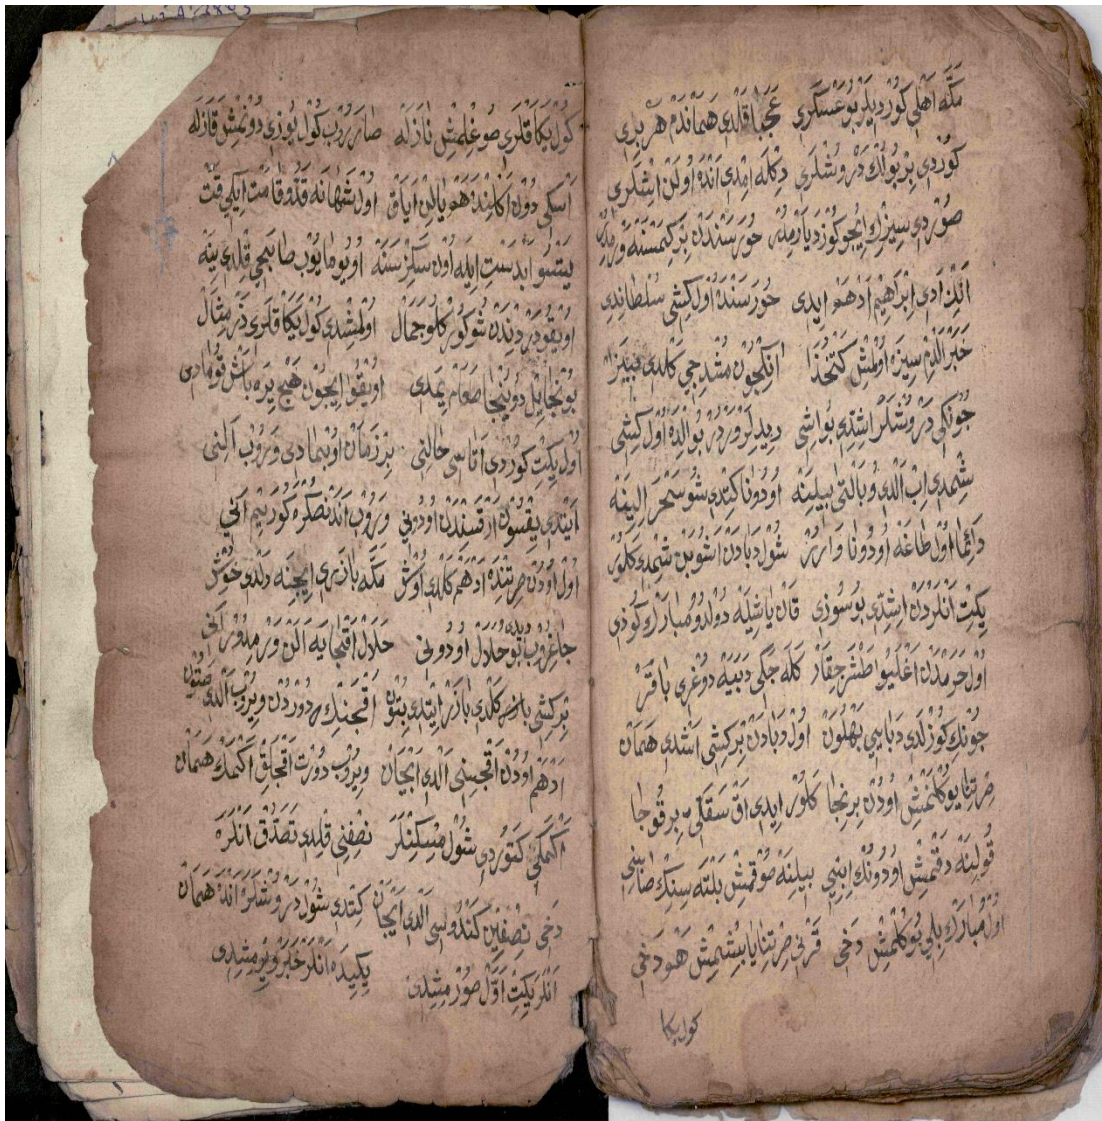 مكّه اهلى كورديلر بو عسكرى عجبا قلدى هماندم هر برى
كوردى بر بولك درويشلرى دكله امدى انده اولن ايشلرى
صوردى سيزك ايچوكوزد يارميدر حورسندن بر كمسنه وارميدر
انك ادى ابراهيم ادهم ايدى حورسنده اول كشى سلطانيدى
خبر الدم سيزه اولمش كتخدا انكچون مشدجى كلدى
چونكى درويشلر اشتدى بو اشى ديديلر واردر بولده اول كشى
شمدى اب الدى و بالتى بيلينه اودونا كتدى شو سحر الينه
دائما اول طاغه اودونا وارر شول دبادن اشوبن شمدى كلور
يكت انلردن اشتدى بو سوزى قان ياشيله دولدو مبارك كوزى
اول حرمدن اغليو طشر چقار كله جكى دبيه دوغرى باقر
چونك كوزلدى دبايى پهلون اول دبادن بر كشى اشدى همان
صرتنا يوكلنمش اودن برنجا كلور ايدى اق سقللى بر قوجا
قولينه دقمش اودونك ابنى بيلينه صوقمش بلته سنك صابنى
اول مبارك بلى بوكلمش دخى قرنى صرتنا يابشمش هو دخى
كول يكا
كول يكاقلرى صوغلمش نازله صارروب كول يوزى دونمش قازله
اسكى دون اكلنده هو يالن اياق اول شهانه قدوقامت ايكى قت
يتسو ابدست ايله اون سكز سنه اويومايوب صائمجى قلدى ينه
اويقو دردندن شو كوركلو جمال اولمشدى كول يكاقلرى در مثال
بونجا ييل دوينجا طعام يمدى اويقو ايچون هيچ يره باش قومادى
اول يكت كوردى اتاسى حالنى بر زمان اونمادى وروب النى
ايتدى يقسون ارقسندن اودونى وروب اندنصكره كوريم انى
اول اودن صرتنده ادهم كلدى اوش مكه بازرى ايچنه دلدى خوش
چاغروب ديدى بو حلال اودونى حلال اقچايه الن ورميدر انى
بر كشى كلدى بازار ايتدى بتون اقچنك دوردن ويروب الدى صتون
ادهم اودن اقچسينى الدى ايجان ويروب دورت اقچالق اكمك همان
اكمكى كتوردى شول مسكينلر نصفنى قلدى تصدق انلره
دخى نصفين كندوسى الدى ايجان كتدى شول درويشلر انده همان
انلر يكت اول صورمشدى يكيده انلر خبر ويرمشدى